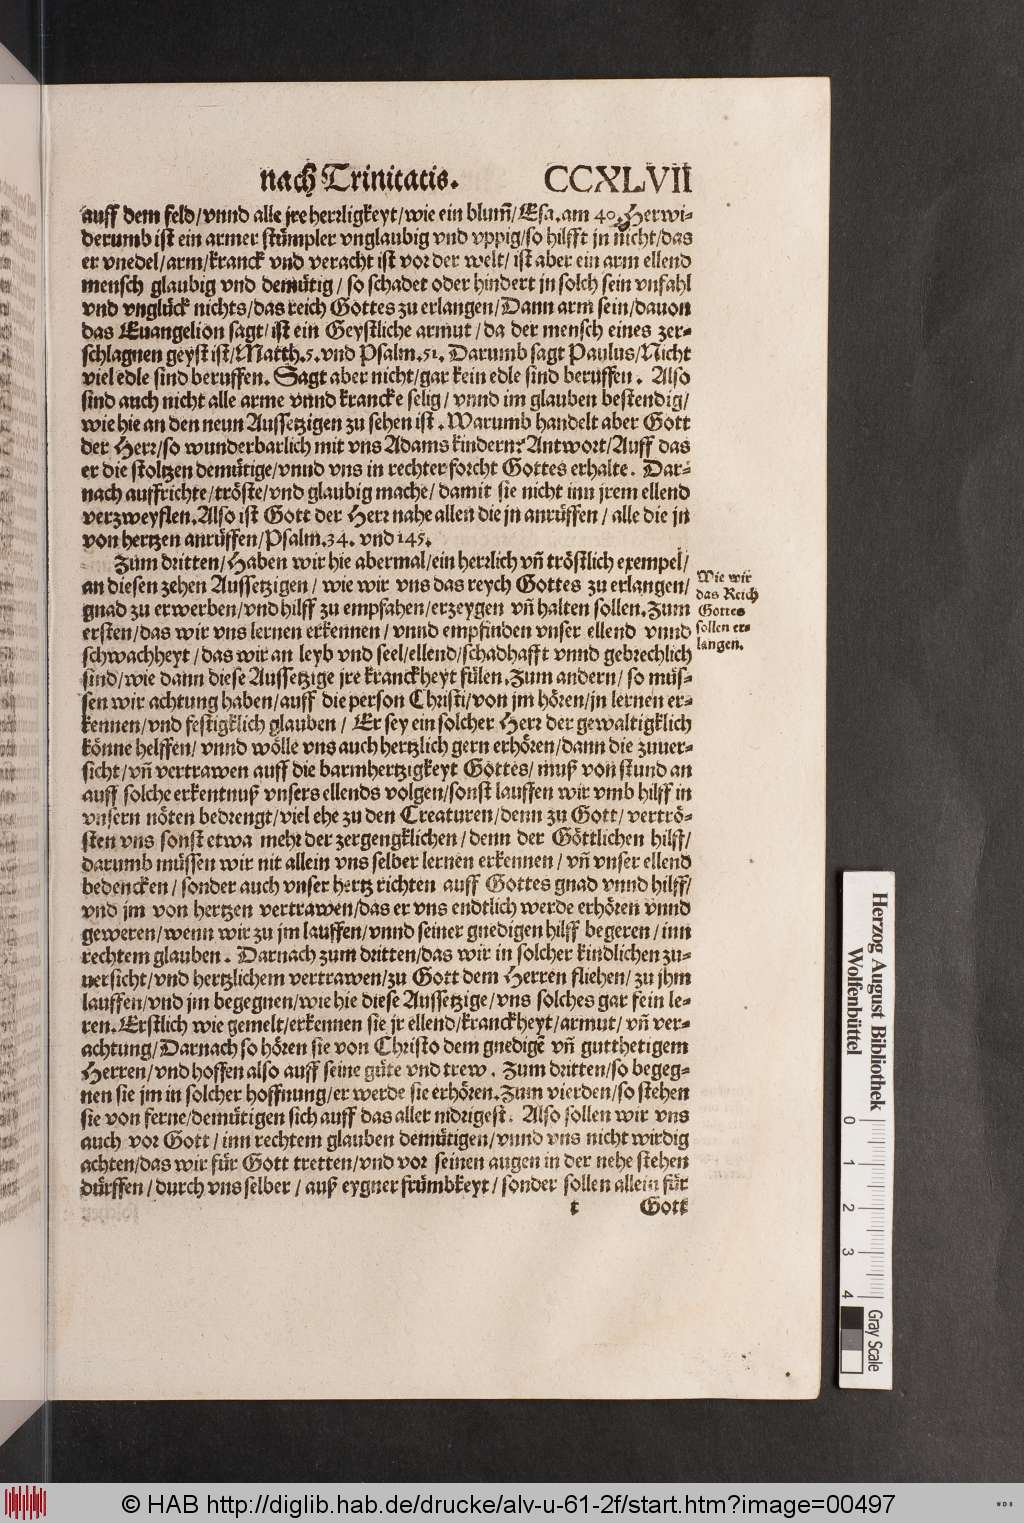 nach Trinitatis. CCXLVII
auff dem feld/vnnd alle jre herrligkeyt/wie ein blum̃/Esa. am 40. Herwi-
derumb ist ein armer stümpler vnglaubig vnd vppig/so hilfft jn nicht/das
er vnedel/arm/kranck vnd veracht ist vor der welt/ ist aber ein arm ellend
mensch glaubig vnd demütig / so schadet oder hindert jn solch sein vnfahl
vnd vnglück nichts/das reich Gottes zu erlangen/Dann arm sein/dauon
das Euangelion sagt/ ist ein Geystliche armut / da der mensch eines zer-
schlagnen geyst ist/Matth.5.vnd Psalm.51. Darumb sagt Paulus/Nicht
viel edle sind beruffen. Sagt aber nicht/gar kein edle sind beruffen. Also
sind auch nicht alle arme vnnd krancke selig/ vnnd im glauben bestendig/
wie hie an den neun Aussetzigen zu sehen ist. Warumb handelt aber Gott
der Herr/so wunderbarlich mit vns Adams kindern? Antwort/Auff das
er die stoltzen demütige/vnnd vns in rechter forcht Gottes erhalte. Dar-
nach auffrichte/tröste/vnd glaubig mache/ damit sie nicht inn jrem ellend
verzweyflen. Also ist Gott der Herr nahe allen die jn anrüffen / alle die jn
von hertzen anrüffen/Psalm.34. vnd 145.
Zum dritten/Haben wir hie abermal/ein herrlich vñ tröstlich exempel/
an diesen zehen Aussetzigen / wie wir vns das reych Gottes zu erlangen/
gnad zu erwerben/vnd hilff zu empfahen/erzeygen vñ halten sollen. Zum
ersten/das wir vns lernen erkennen / vnnd empfinden vnser ellend vnnd
schwachheyt / das wir an leyb vnd seel/ellend/schadhafft vnnd gebrechlich
sind/wie dann diese Aussetzige jre kranckheyt fülen. Zum andern/ so müs-
sen wir achtung haben/auff die person Christi/von jm hören/jn lernen er-
kennen/vnd festigklich glauben / Er sey ein solcher Herr der gewaltigklich
könne helffen/ vnnd wölle vns auch hertzlich gern erhören/dann die zuuer-
sicht/vñ vertrawen auff die barmhertzigkeyt Gottes/ muß von stund an
auff solche erkentnuß vnsers ellends volgen/sonst lauffen wir vmb hilff in
vnsern nöten bedrengt/viel ehe zu den Creaturen/denn zu Gott/ vertrö-
sten vns sonst etwa mehr der zergengklichen/ denn der Göttlichen hilff/
darumb müssen wir nit allein vns selber lernen erkennen / vñ vnser ellend
bedencken / sonder auch vnser hertz richten auff Gottes gnad vnnd hilff/
vnd jm von hertzen vertrawen/das er vns endtlich werde erhören vnnd
geweren/wenn wir zu jm lauffen/vnnd seiner gnedigen hilff begeren / inn
rechtem glauben. Darnach zum dritten/das wir in solcher kindlichen zu-
uersicht/vnd hertzlichem vertrawen/zu Gott dem Herren fliehen/ zu jhm
lauffen/vnd jm begegnen/wie hie diese Aussetzige/vns solches gar fein le-
ren. Erstlich wie gemelt/erkennen sie jr ellend/kranckheyt/armut/ vñ ver-
achtung/Darnach so hören sie von Christo dem gnedigẽ vñ gutthetigem
Herren/vnd hoffen also auff seine güte vnd trew. Zum dritten/so begeg-
nen sie jm in solcher hoffnung/er werde sie erhören. Zum vierden/so stehen
sie von ferne/demütigen sich auff das aller nidrigest. Also sollen wir vns
auch vor Gott / inn rechtem glauben demütigen/vnnd vns nicht wirdig
achten/das wir für Gott tretten/vnd vor seinen augen in der nehe stehen
dürffen / durch vns selber / auß eygner frümbkeyt/ sonder sollen allein für
t Gott
Wie wir
das Reich
Gottes
sollen er-
langen.
Herzog August Bibliothek
Wolfenbüttel
0 1 2 3 4
Gray Scale
© HAB http://diglib.hab.de/drucke/alv-u-61-2f/start.htm?image=00497